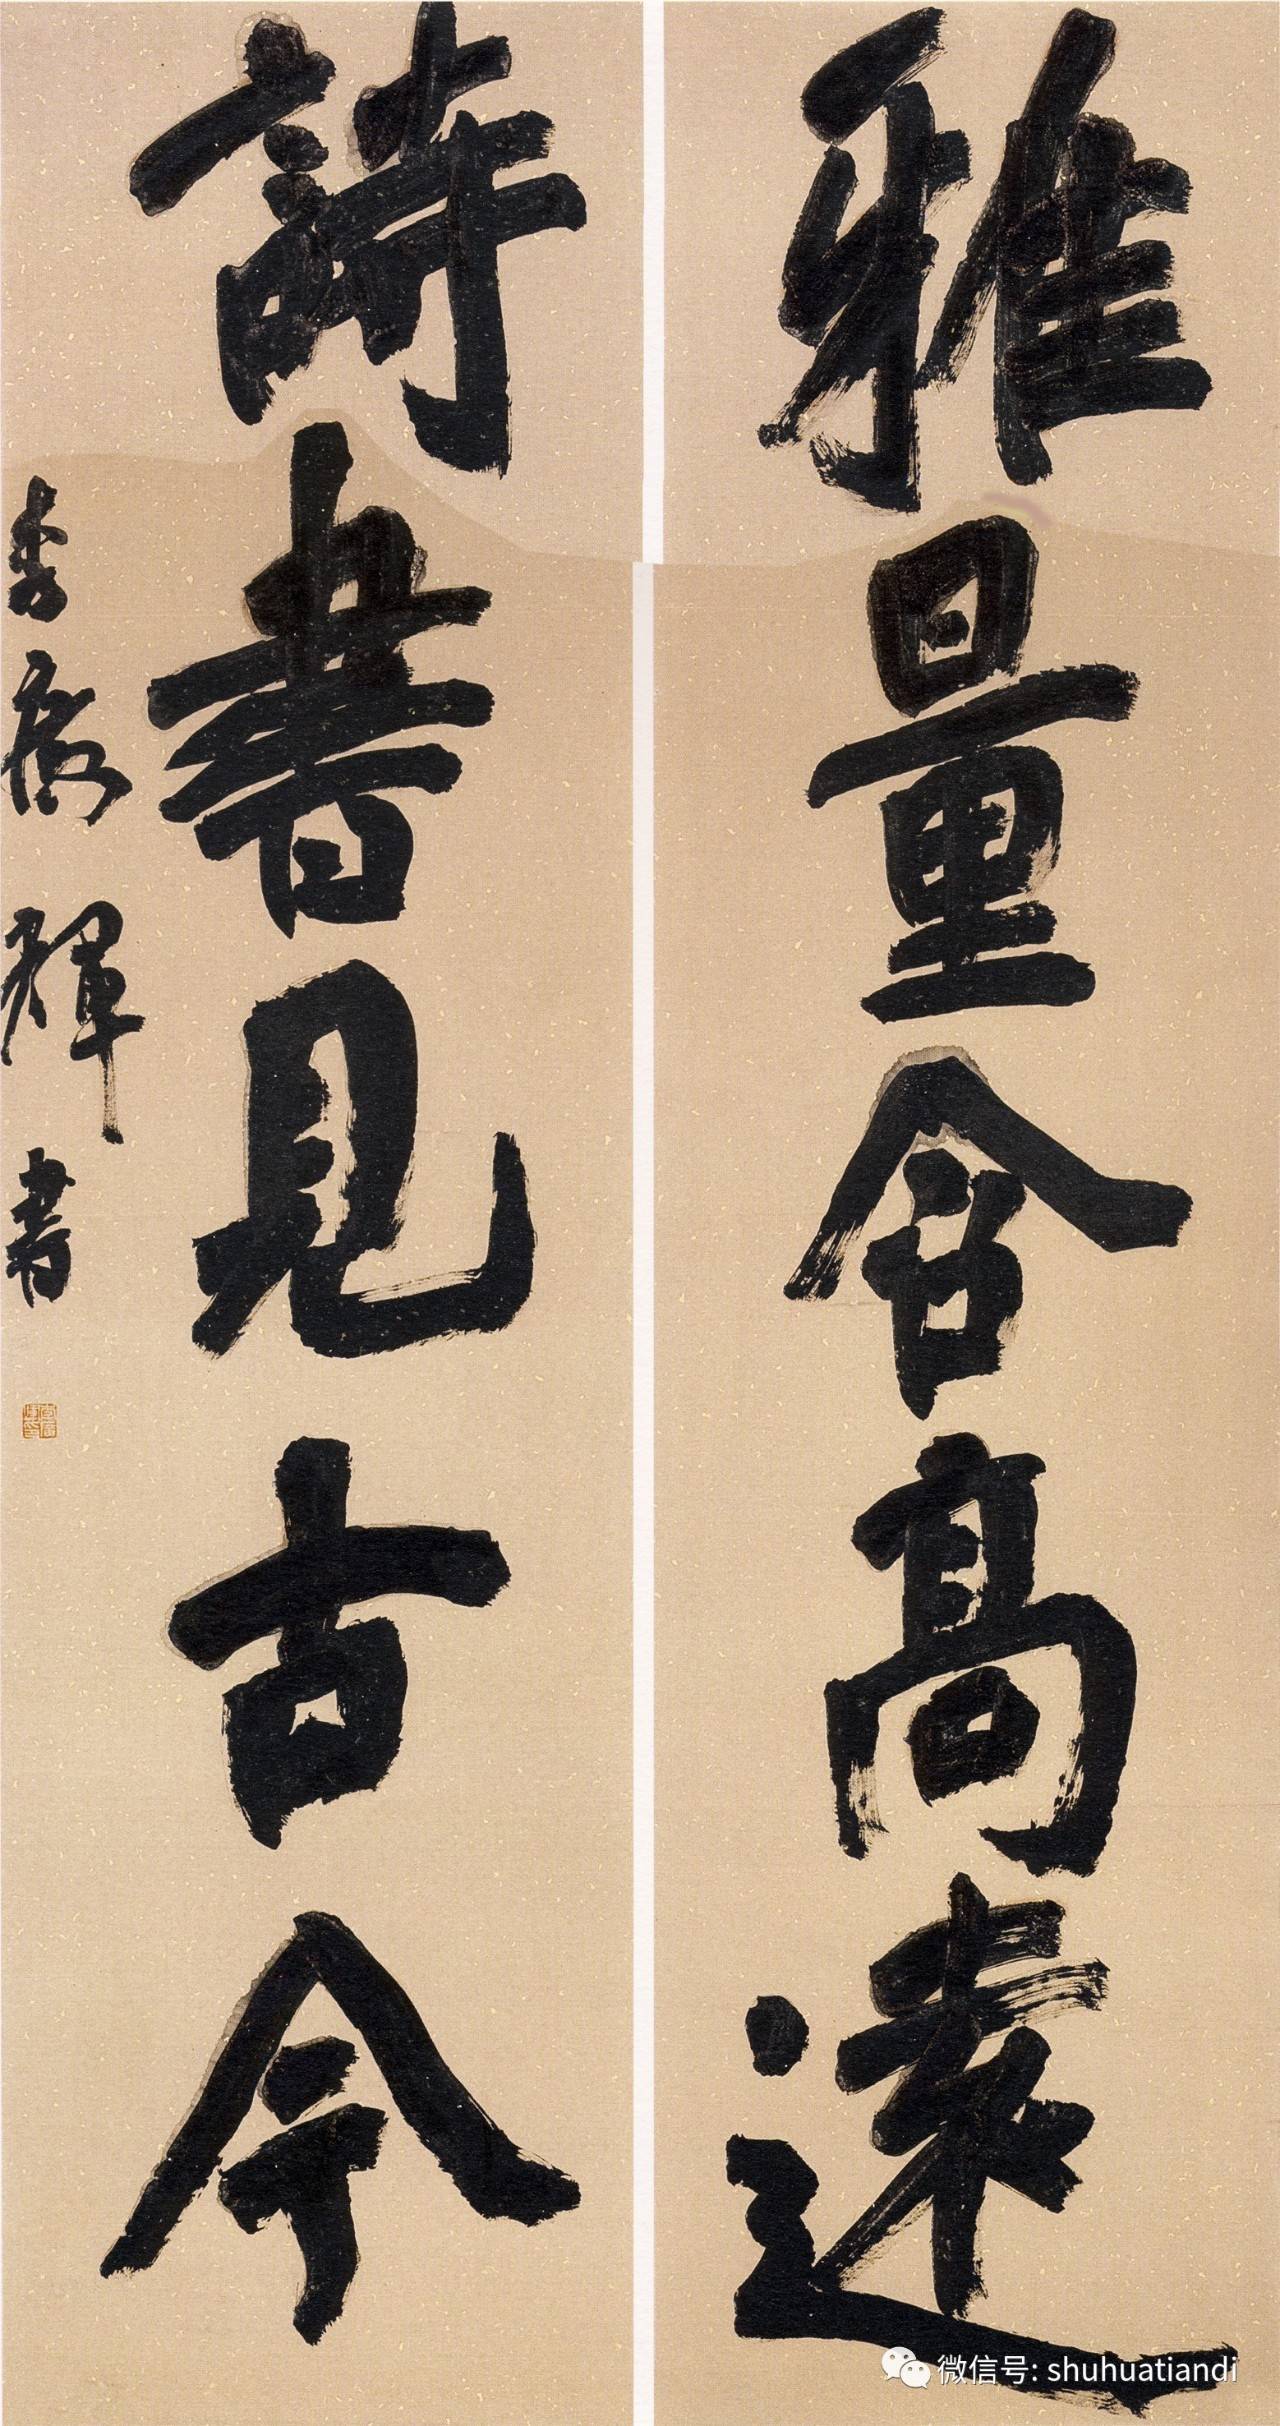 雅量含高遠
詩書見古今
李輝書
微信号: shuhuatiandi